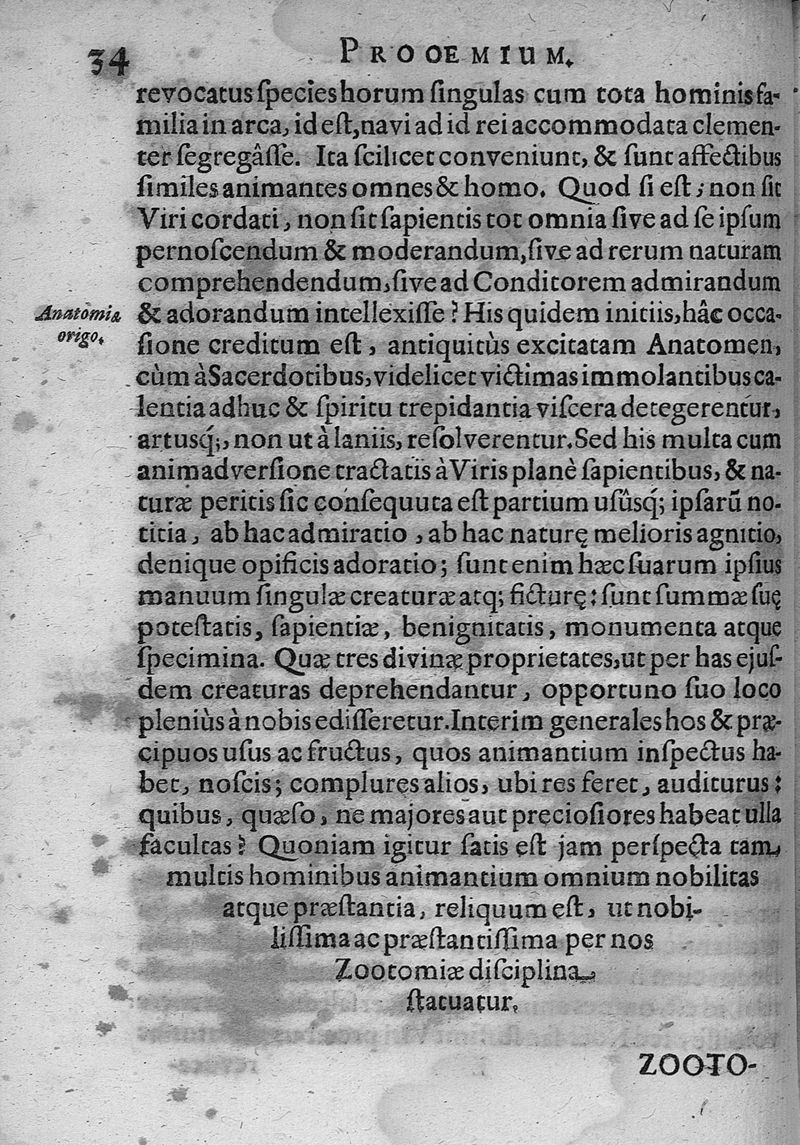 34
PROOEMIUM.
revocatus ſpecies horum ſingulas cum tota hominis fa-
milia in arca, id eſt, navi ad id rei accommodata clemen-
ter ſegregâſſe. Ita ſcilicet conveniunt, & ſunt affectibus
ſimiles animantes omnes & homo. Quod ſi eſt; non ſit
Viri cordati, non ſit ſapientis tot omnia ſive ad ſe ipſum
pernoſcendum & moderandum, ſive ad rerum naturam
comprehendendum, ſive ad Conditorem admirandum
Anatomiæ
origo.
& adorandum intellexiſſe? His quidem initiis, hâc occa-
ſione creditum eſt, antiquitùs excitatam Anatomen,
cùm à Sacerdotibus, videlicet victimas immolantibus ca-
lentia adhuc & ſpiritu trepidantia viſcera detegerentur,
artusq́;, non ut à laniis, reſolverentur. Sed his multa cum
animadverſione tractatis à Viris planè ſapientibus, & na-
turæ peritis ſic conſequuta eſt partium uſûsq́; ipſarũ no-
titia, ab hac admiratio, ab hac naturę melioris agnitio,
denique opificis adoratio; ſunt enim hæc ſuarum ipſius
manuum ſingulæ creaturæ atq; ficturę: ſunt ſummæ ſuę
poteſtatis, ſapientiæ, benignitatis, monumenta atque
ſpecimina. Quæ tres divinæ proprietates, ut per has ejuſ-
dem creaturas deprehendantur, opportuno ſuo loco
pleniùs à nobis ediſſeretur. Interim generales hos & præ-
cipuos uſus ac fructus, quos animantium inſpectus ha-
bet, noſcis; complures alios, ubi res feret, auditurus:
quibus, quæſo, ne majores aut precioſiores habeat ulla
facultas? Quoniam igitur ſatis eſt jam perſpecta tam
multis hominibus animantium omnium nobilitas
atque præſtantia, reliquum eſt, ut nobi-
liſſima ac præſtantiſſima per nos
Zootomiæ diſciplina
ſtatuatur.
ZOOTO-